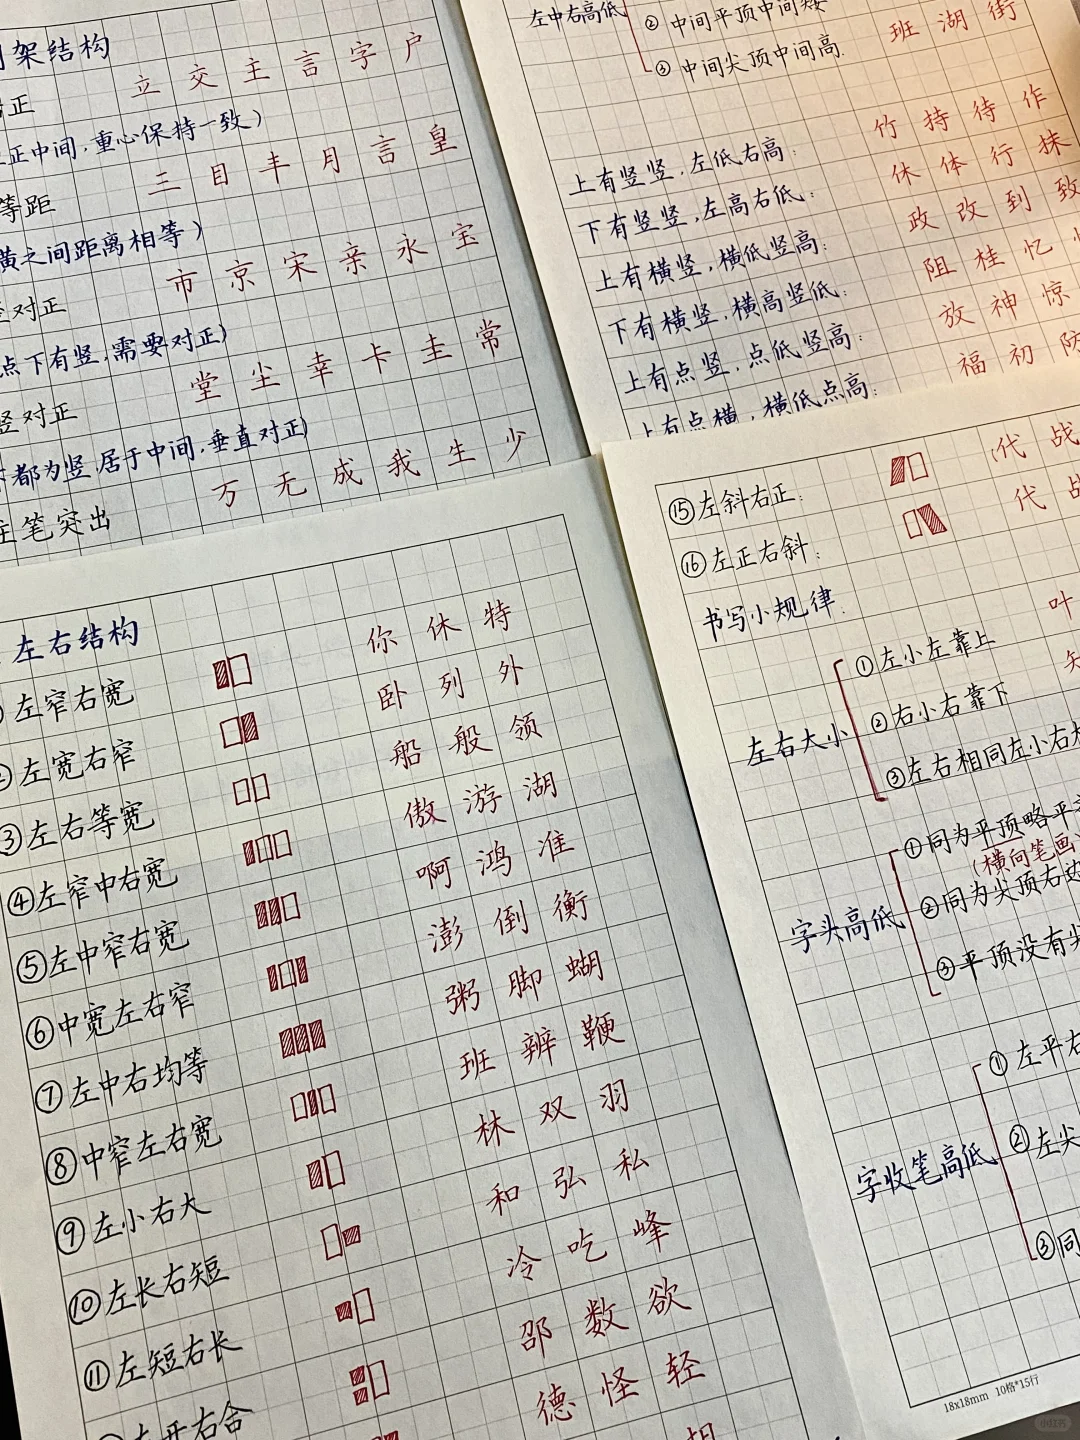 架结构
立 交 主 言 字 户
正
正中间，重心保持一致）
三 目 丰 月 言 皇
等距
横之间距离相等）
市 京 宋 亲 永 宝
对正
点下有竖，需要对正)
堂 尘 幸 卡 圭 常
竖对正
都为竖，居于中间，垂直对正)
万 无 成 我 生 少
主笔突出
左中右高低
② 中间平顶中间矮
③ 中间尖顶中间高.
班 湖 街
竹 持 待 作
上有竖竖，左低右高：
休 体 行 抹
下有竖竖，左高右低：
政 改 到 致
上有横竖，横低竖高：
阻 桂 忆
下有横竖，横高竖低：
放 神 惊
上有点竖，点低竖高：
福 初
上有点横，横低点高：
左右结构
左窄右宽 你 休 特
左宽右窄 卧 列 外
③左右等宽 船 般 领
④左窄中右宽 傲 游 湖
⑤左中窄右宽 啊 鸿 准
⑥中宽左右窄 澎 倒 衡
⑦左中右均等 粥 脚 蝴
⑧中窄左右宽 班 辨 鞭
⑨左小右大 林 双 羽
⑩左长右短 和 弘 私
⑪左短右长 冷 吃 峰
左开右合 邵 数 欲
德 怪 轻
⑮左斜右正：
(代 战
⑯左正右斜：
代 战
书写小规律：
叶
左右大小
①左小左靠上
②右小右靠下
③左右相同左小右
字头高低
①同为平顶略平
(横向笔画)
②同为尖顶右
③平顶没有尖
字收笔高低
①左平右
②左尖
③同
18x18mm 10格*15行
小红书